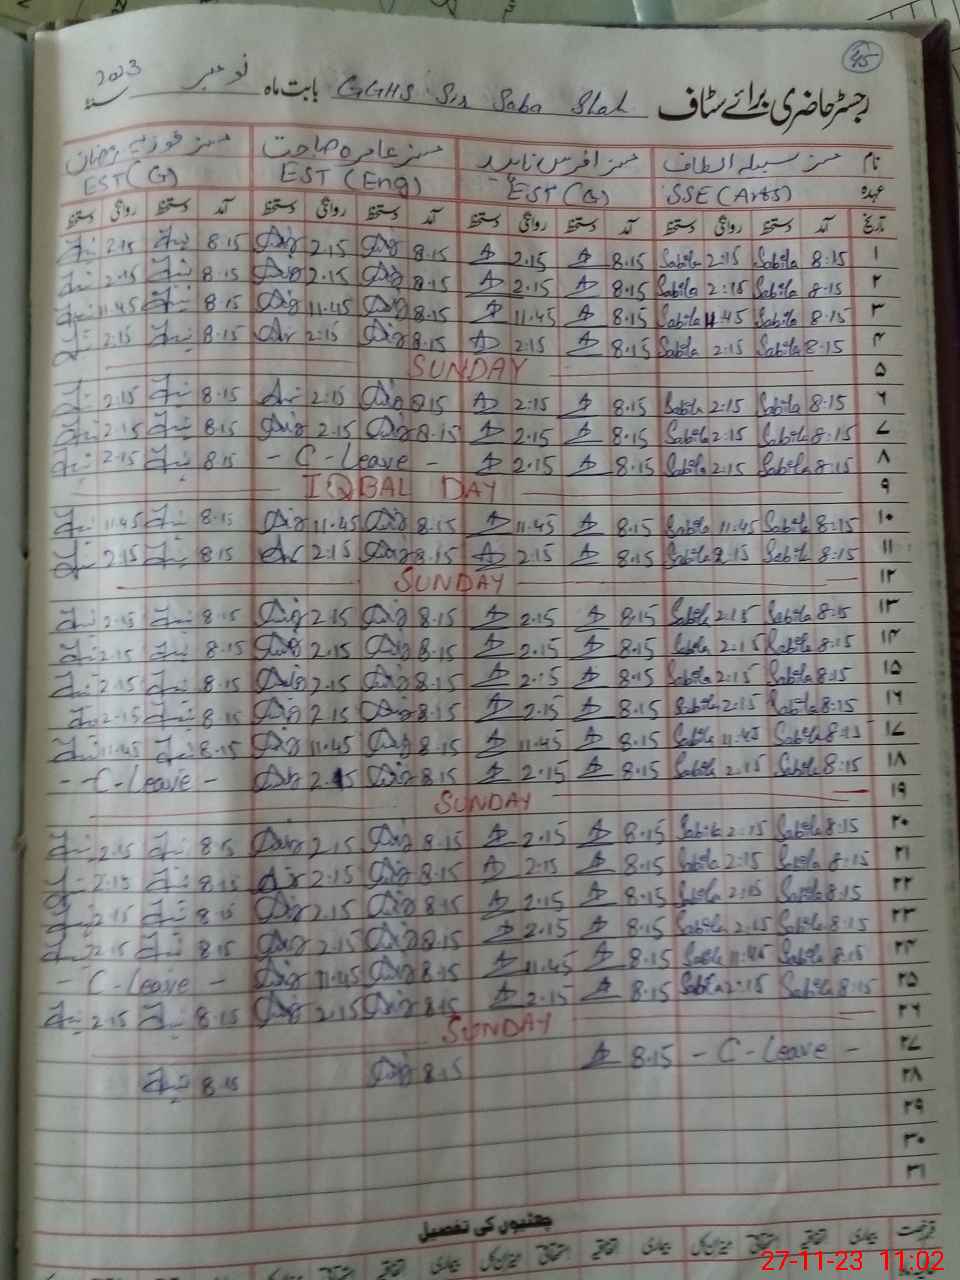 45
رجسٹر حاضری برائے سٹاف GGHS Sir Saba Shah بابت ماہ نومبر 2023
نام مسز سبیلہ الطاف مسز مسز عامرہ مسز فوزیہ رمضان
عہدہ SSE (Arts) EST (G) EST (Eng) EST (G)
تاریخ آمد دستخط روانگی دستخط آمد دستخط روانگی دستخط آمد دستخط روانگی دستخط آمد دستخط روانگی دستخط
۱ 8:15 Sabila 2:15 Sabila 8.15 2.15 8.15 2.15 8.15 2.15
۲ 8:15 Sabila 2:15 Sabila 8.15 2.15 8.15 2.15 8.15 2.15
۳ 8:15 Sabila 11.45 Sabila 8.15 11.45 8.15 11.45 8.15 11.45
۴ 8:15 Sabila 2:15 Sabila 8.15 2.15 8.15 2.15 8.15 2.15
۵ SUNDAY
۶ 8:15 Sabila 2:15 Sabila 8.15 2.15 8.15 2.15 8.15 2.15
۷ 8:15 Sabila 2:15 Sabila 8.15 2.15 8.15 2.15 8.15 2.15
۸ 8:15 Sabila 2:15 Sabila 8.15 2.15 - C-Leave - 8.15 2.15
۹ IQBAL DAY
۱۰ 8:15 Sabila 11:45 Sabila 8.15 11.45 8.15 11.45 8.15 11.45
۱۱ 8:15 Sabila 2:15 Sabila 8.15 2.15 8.15 2.15 8.15 2.15
۱۲ SUNDAY
۱۳ 8:15 Sabila 2:15 Sabila 8.15 2.15 8.15 2.15 8.15 2.15
۱۴ 8:15 Sabila 2:15 Sabila 8.15 2.15 8.15 2.15 8.15 2.15
۱۵ 8:15 Sabila 2:15 Sabila 8.15 2.15 8.15 2.15 8.15 2.15
۱۶ 8:15 Sabila 2:15 Sabila 8.15 2.15 8.15 2.15 8.15 2.15
۱۷ 8:15 Sabila 11:45 Sabila 8.15 11.45 8.15 11.45 8.15 11.45
۱۸ 8:15 Sabila 2:15 Sabila 8.15 2.15 8.15 2.15 - C-Leave -
۱۹ SUNDAY
۲۰ 8:15 Sabila 2:15 Sabila 8.15 2.15 8.15 2.15 8.15 2.15
۲۱ 8:15 Sabila 2:15 Sabila 8.15 2.15 8.15 2.15 8.15 2.15
۲۲ 8:15 Sabila 2:15 Sabila 8.15 2.15 8.15 2.15 8.15 2.15
۲۳ 8:15 Sabila 2:15 Sabila 8.15 2.15 8.15 2.15 8.15 2.15
۲۴ 8:15 Sabila 11:45 Sabila 8.15 11.45 8.15 11.45 - C-Leave -
۲۵ 8:15 Sabila 2:15 Sabila 8.15 2.15 8.15 2.15 8.15 2.15
۲۶ SUNDAY
۲۷ - C-Leave - 8.15 8.15 8.15
۲۸
۲۹
۳۰
۳۱
چھٹیوں کی تفصیل
قسم رخصت بیماری اتفاقیہ استحقاقی میزان کل بیماری اتفاقیہ استحقاقی میزان کل بیماری اتفاقیہ استحقاقی میزان کل بیماری
27-11-23 11:02